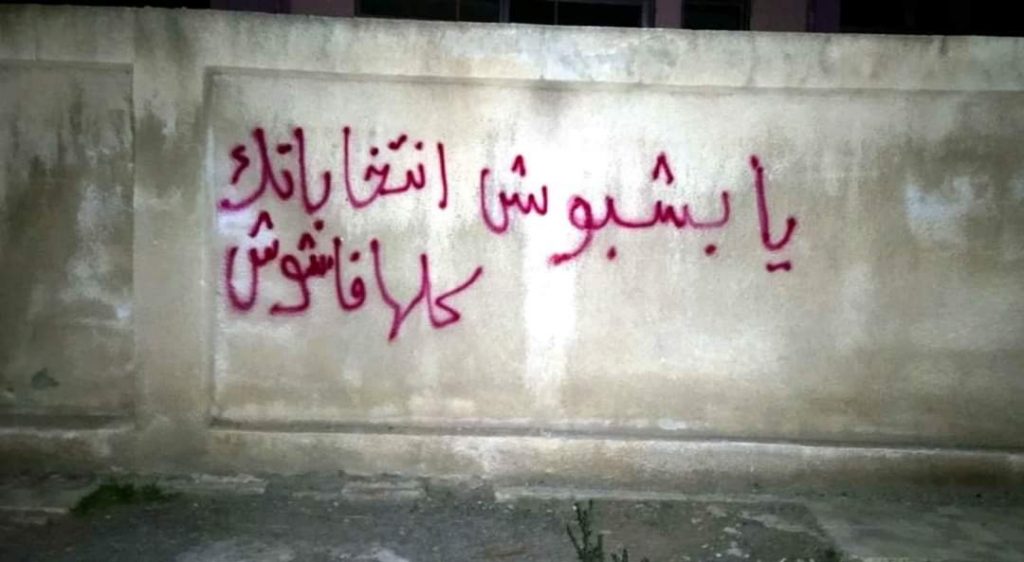 يا بشبوش انتخاباتك
كلها فاشوش